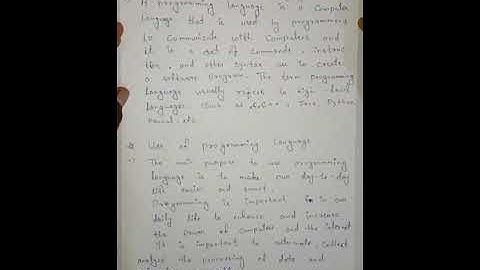 A programming language is a computer
language that is used by programmers
to communicate with computers and
it is a set of commands, instruc
tion, and other syntax use to create
a software program. The term programming
language usually refers to high-level
languages such as C, C++, Java, Python
Pascal etc.
Use of programming language
The main purpose to use programming
language is to make our day-to-day
life easier and smart.
Programming is important in our
daily life to enhance and increase
the power of computers and the internet
It is important to automate, collect
analyse the processing of data and